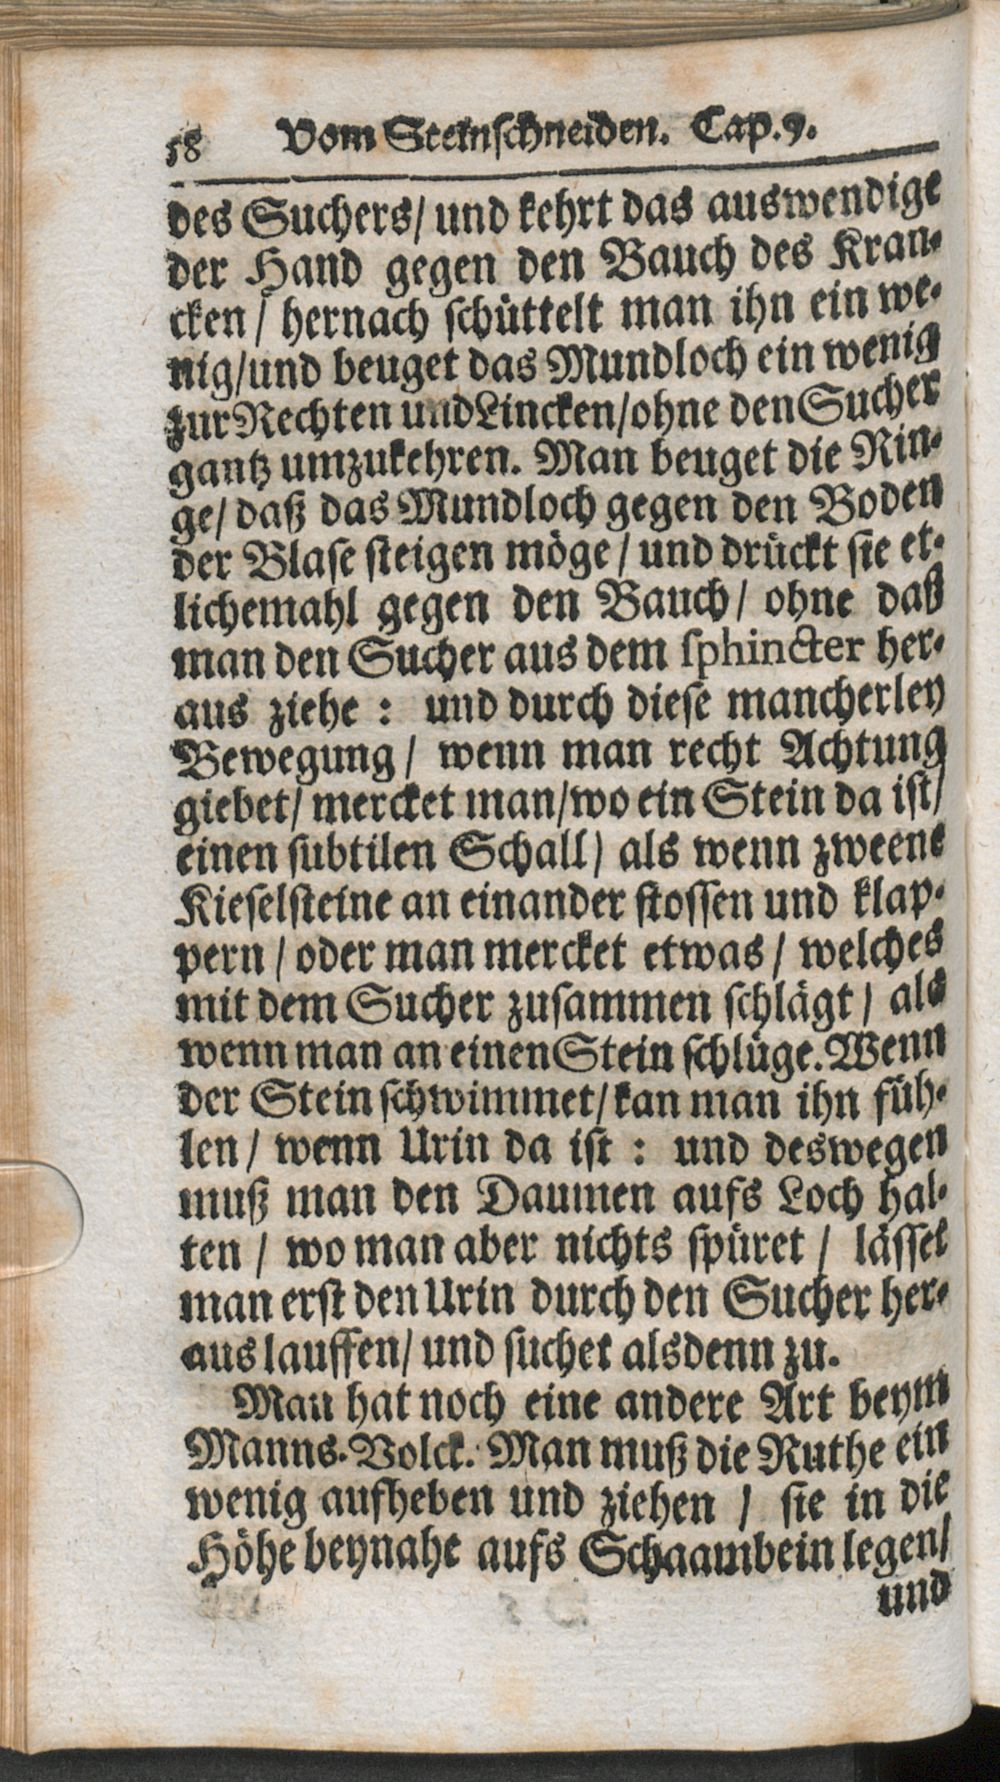 58 Vom Steinschneiden. Cap. 9.
des Suchers/ und kehrt das auswendige
der Hand gegen den Bauch des Kran-
cken / hernach schüttelt man ihn ein we-
nig/und beuget das Mundloch ein wenig
zur Rechten und Lincken/ohne den Sucher
gantz umzukehren. Man beuget die Rin-
ge/ daß das Mundloch gegen den Boden
der Blase steigen möge / und drückt sie et-
lichemahl gegen den Bauch/ ohne daß
man den Sucher aus dem sphincter her-
aus ziehe : und durch diese mancherley
Bewegung/ wenn man recht Achtung
giebet/ mercket man/wo ein Stein da ist/
einen subtilen Schall/ als wenn zweene
Kieselsteine an einander stossen und klap-
pern / oder man mercket etwas / welches
mit dem Sucher zusammen schlägt / als
wenn man an einen Stein schlüge. Wenn
der Stein schwimmet/kan man ihn füh-
len/ wenn Urin da ist : und deswegen
muß man den Daumen aufs Loch hal-
ten / wo man aber nichts spüret / lässet
man erst den Urin durch den Sucher her-
aus lauffen/ und suchet alsdenn zu.
Man hat noch eine andere Art beym
Manns-Volck. Man muß die Ruthe ein
wenig aufheben und ziehen / sie in die
Höhe beynahe aufs Schaambein legen/
und